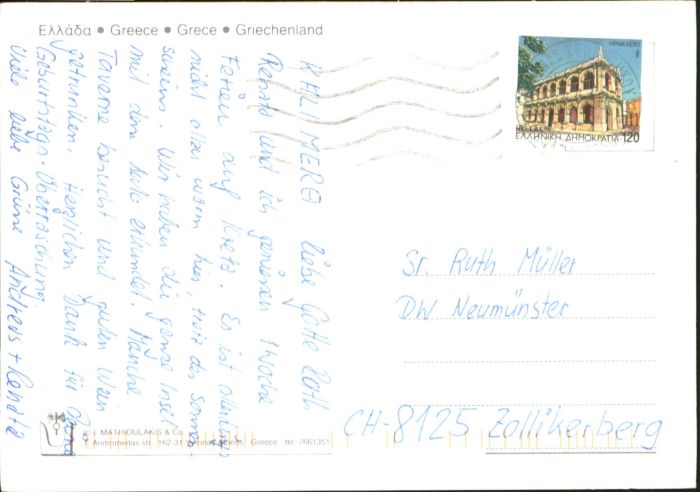 Ελλάδα • Greece • Grece • Griechenland
ΗΡΑΚΛΕΙΟ
HELLAS
ΕΛΛΗΝΙΚΗ ΔΗΜΟΚΡΑΤΙΑ 120
KALIMERA liebe Gotte Ruth
Renate und ich geniessen 1 Woche
Ferien auf Kreta. Es ist allerdings
nicht allzu warm hier, trotz des Sonnen-
scheins. Wir haben die ganze Insel
mit dem Auto erkundet. Manche
Taverne besucht und guten Wein
getrunken. Herzlichen Dank für Deine
Geburtstags-Überraschung.
Viele liebe Grüsse Andreas + Renate
Sr. Ruth Müller
DW Neumünster
CH-8125 Zollikerberg
MATHIOULAKIS & Co
Andromedas str. 162 31 Athens - Greece - tel. 7661351